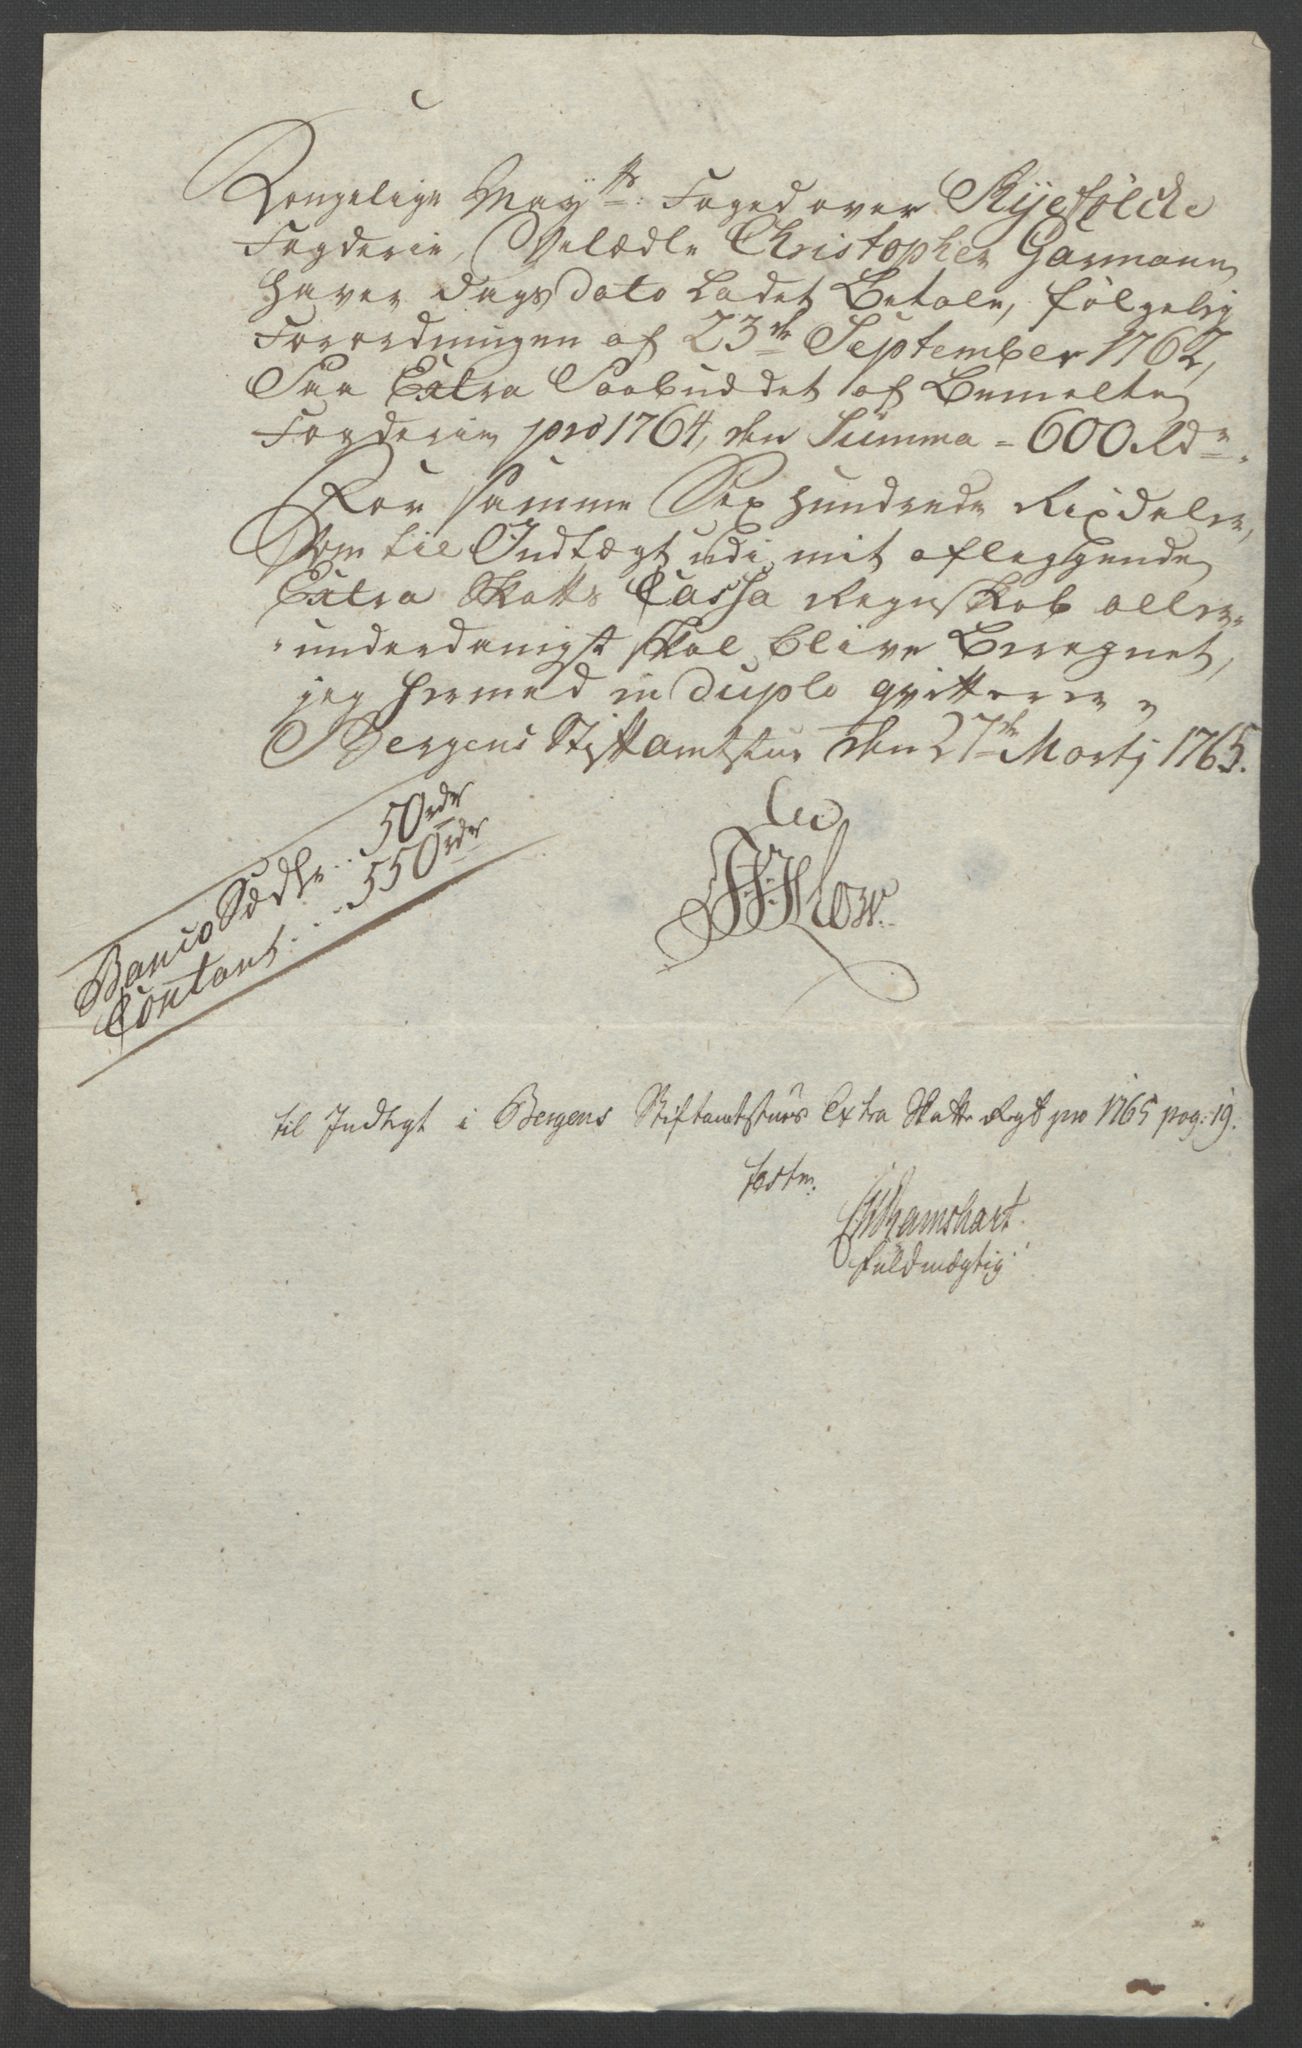 Kongelige May:ts Foged over Ryefölcke
Fogderie, Velædle Christopher Garmann,
haver dags dato ladet Betale, følgelig
Forordningen af 23de September 1762,
Paa Extra Paabuddet af Bemelte
Fogderie pro 1764, den Summa = 600 Rdr.
For samme Sex hundrede Rixdaler,
Som til Indtægt udi mit afleggende
Extra Skatts Cassa Regnskab aller-
underdanigst skal blive Beregnet,
jeg hermed in duplo qvitterer,
Bergens Stiftamtstue den 27de Martj 1765.
Banco Sedler .. 50 rdr
Contant .... 550 rdr
til Indtegt i Bergens Stiftamtstues Extra Skatte Regsk pro 1765 pag: 19.
test:
Fuldmægtig